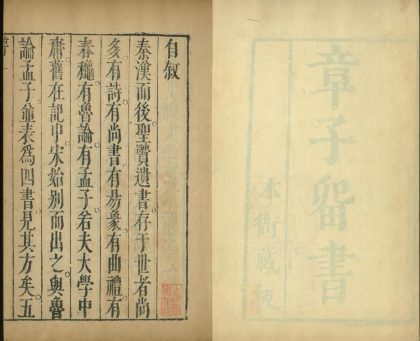 章子畱書
本衙藏板
自叙
秦漢而後聖賢遺書存于世者尚
多有詩有尚書有易象有曲禮有
春穐有魯論有孟子若夫大學中
庸舊在記中宋始別而出之與魯
論孟子並表爲四書見其方矣五